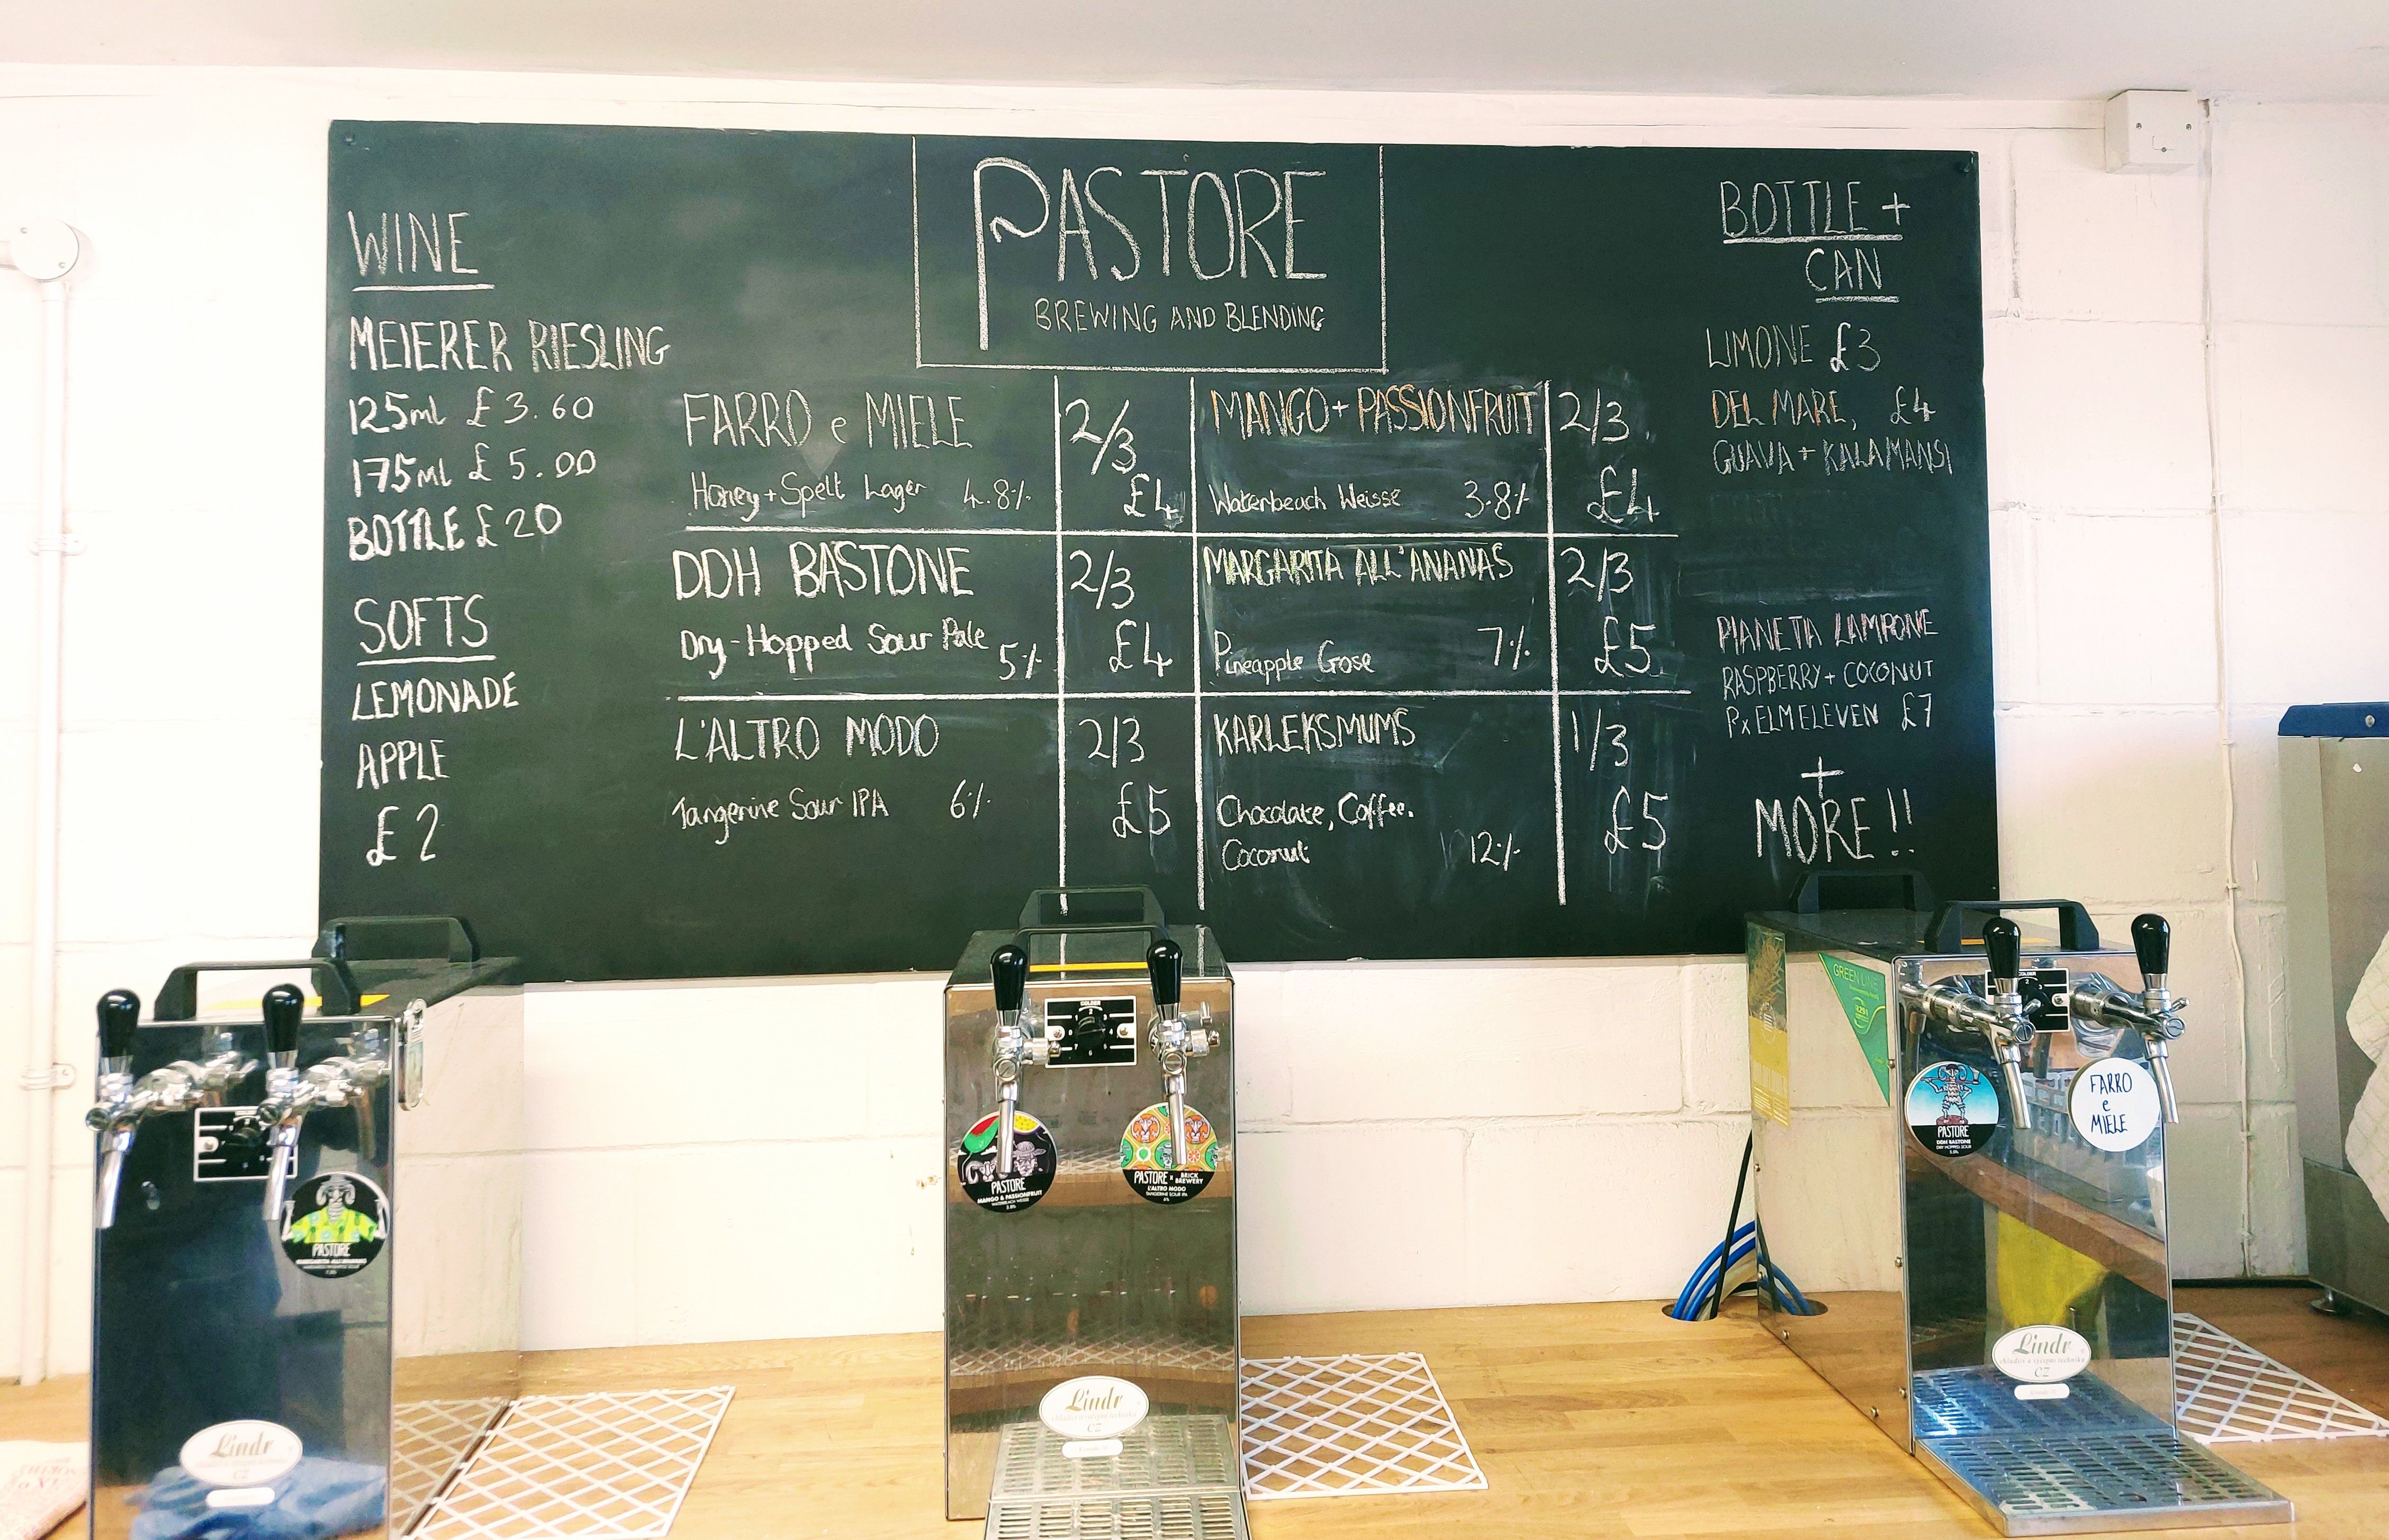 PASTORE
BREWING AND BLENDING
WINE
MEIERER RIESLING
125ml £3.60
175ml £5.00
BOTTLE £20
SOFTS
LEMONADE
APPLE
£2
FARRO e MIELE 2/3
Honey + Spelt Lager 4.8% £4
DDH BASTONE 2/3
Dry-Hopped Sour Pale 5% £4
L'ALTRO MODO 2/3
Tangerine Sour IPA 6% £5
MANGO + PASSIONFRUIT 2/3
Waterbeach Weisse 3.8% £4
MARGARITA ALL'ANANAS 2/3
Pineapple Gose 7% £5
KARLEKSMUMS 1/3
Chocolate, Coffee.
Coconut 12% £5
BOTTLE +
CAN
LIMONE £3
DEL MARE, £4
GUAVA + KALAMANSI
PIANETA LAMPONE
RASPBERRY + COCONUT
PxELMELEVEN £7
+
MORE!!
PASTORE
MARGARITA ALL'ANANAS
Lindr
CZ
COLDER
PASTORE
MANGO & PASSIONFRUIT
WATERBEACH WEISSE
3.8%
PASTORE x BRICK BREWERY
L'ALTRO MODO
TANGERINE SOUR IPA
6%
Lindr
CZ
GREEN LINE
COLDER
PASTORE
DDH BASTONE
DRY HOPPED SOUR
5.0%
FARRO
e
MIELE
Lindr
CZ